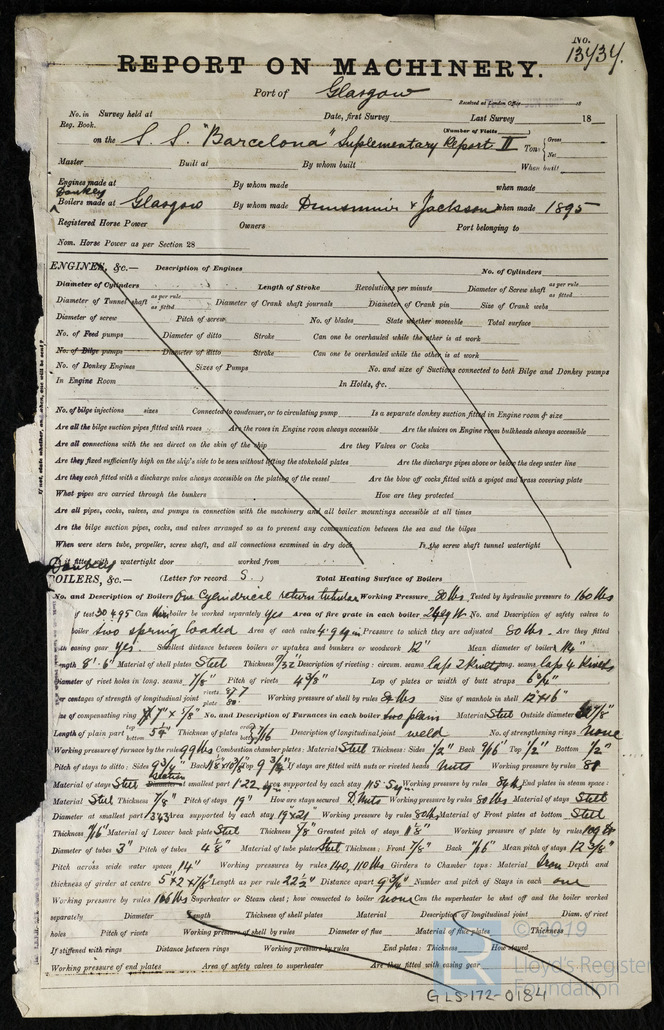 No.
13434.
REPORT ON MACHINERY.
Port of Glasgow
Received at London Office 18
No. in Survey held at Date, first Survey Last Survey 18
Reg. Book. (Number of Visits)
on the S. S. "Barcelona" Suplementary Report II Tons Gross
Net
Master Built at By whom built When built
Engines made at By whom made when made
Donkey
Boilers made at Glasgow By whom made Dunsmuir & Jackson when made 1895
Registered Horse Power Owners Port belonging to
Nom. Horse Power as per Section 28
ENGINES, &c.— Description of Engines No. of Cylinders
Diameter of Cylinders Length of Stroke Revolutions per minute Diameter of Screw shaft as per rule as fitted
Diameter of Tunnel shaft as per rule as fitted Diameter of Crank shaft journals Diameter of Crank pin Size of Crank webs
Diameter of screw Pitch of screw No. of blades State whether moveable Total surface
No. of Feed pumps Diameter of ditto Stroke Can one be overhauled while the other is at work
No. of Bilge pumps Diameter of ditto Stroke Can one be overhauled while the other is at work
No. of Donkey Engines Sizes of Pumps No. and size of Suctions connected to both Bilge and Donkey pumps
In Engine Room In Holds, &c.
No. of bilge injections sizes Connected to condenser, or to circulating pump Is a separate donkey suction fitted in Engine room & size
Are all the bilge suction pipes fitted with roses Are the roses in Engine room always accessible Are the sluices on Engine room bulkheads always accessible
Are all connections with the sea direct on the skin of the ship Are they Valves or Cocks
Are they fixed sufficiently high on the ship's side to be seen without lifting the stokehold plates Are the discharge pipes above or below the deep water line
Are they each fitted with a discharge valve always accessible on the plating of the vessel Are the blow off cocks fitted with a spigot and brass covering plate
What pipes are carried through the bunkers How are they protected
Are all pipes, cocks, valves, and pumps in connection with the machinery and all boiler mountings accessible at all times
Are the bilge suction pipes, cocks, and valves arranged so as to prevent any communication between the sea and the bilges
When were stern tube, propeller, screw shaft, and all connections examined in dry dock Is the screw shaft tunnel watertight
Is it fitted with watertight door worked from
Donkey
BOILERS, &c.— (Letter for record S ) Total Heating Surface of Boilers
No. and Description of Boilers One Cylindrical return tubular Working Pressure 80 lbs Tested by hydraulic pressure to 160 lbs
of test 30.4.95 Can boiler be worked separately yes Area of fire grate in each boiler No. and Description of safety valves to
boiler two spring loaded Area of each valve Pressure to which they are adjusted 80 lbs. Are they fitted
with easing gear yes. Smallest distance between boilers or uptakes and bunkers or woodwork 12" Mean diameter of boilers
length 8'.6" Material of shell plates Steel Thickness Description of riveting: circum. seams lap 2 rivets long. seams lap 4 rivets
diameter of rivet holes in long. seams 7/8" Pitch of rivets 4 3/8" Lap of plates or width of butt straps
per centages of strength of longitudinal joint rivets plate Working pressure of shell by rules Size of manhole in shell 12"x16"
size of compensating ring No. and Description of Furnaces in each boiler two plain Material Steel Outside diameter
Length of plain part top bottom Thickness of plates Description of longitudinal joint weld No. of strengthening rings none
Working pressure of furnace by the rules 99 lbs Combustion chamber plates: Material Steel Thickness: Sides 1/2" Back 9/16 Top 1/2" Bottom 1/2"
Pitch of stays to ditto: Sides Back Top If stays are fitted with nuts or riveted heads Nuts Working pressure by rules
Material of stays Steel Diameter at smallest part 1.22 Area supported by each stay Working pressure by rules End plates in steam space:
Material Steel Thickness 7/8" Pitch of stays 19" How are stays secured D. Nuts Working pressure by rules 80 lbs Material of stays Steel
Diameter at smallest part Area supported by each stay 19"x21" Working pressure by rules Material of Front plates at bottom Steel
Thickness Material of Lower back plate Steel Thickness Greatest pitch of stays Working pressure of plate by rules
Diameter of tubes 3" Pitch of tubes 4 1/8" Material of tube plates Steel Thickness: Front Back Mean pitch of stays
Pitch across wide water spaces 14" Working pressures by rules 140, 110 lbs Girders to Chamber tops: Material Iron Depth and
thickness of girder at centre Length as per rule 22 1/2" Distance apart 9 3/4" Number and pitch of Stays in each one
Working pressure by rules Superheater or Steam chest; how connected to boiler none Can the superheater be shut off and the boiler worked
separately Diameter Length Thickness of shell plates Material Description of longitudinal joint Diam. of rivet
holes Pitch of rivets Working pressure of shell by rules Diameter of flue Material of flue plates Thickness
If stiffened with rings Distance between rings Working pressure by rules End plates: Thickness How stayed
Working pressure of end plates Area of safety valves to superheater Are they fitted with easing gear
© 2019
Lloyd's Register
Foundation
GLS-172-0184